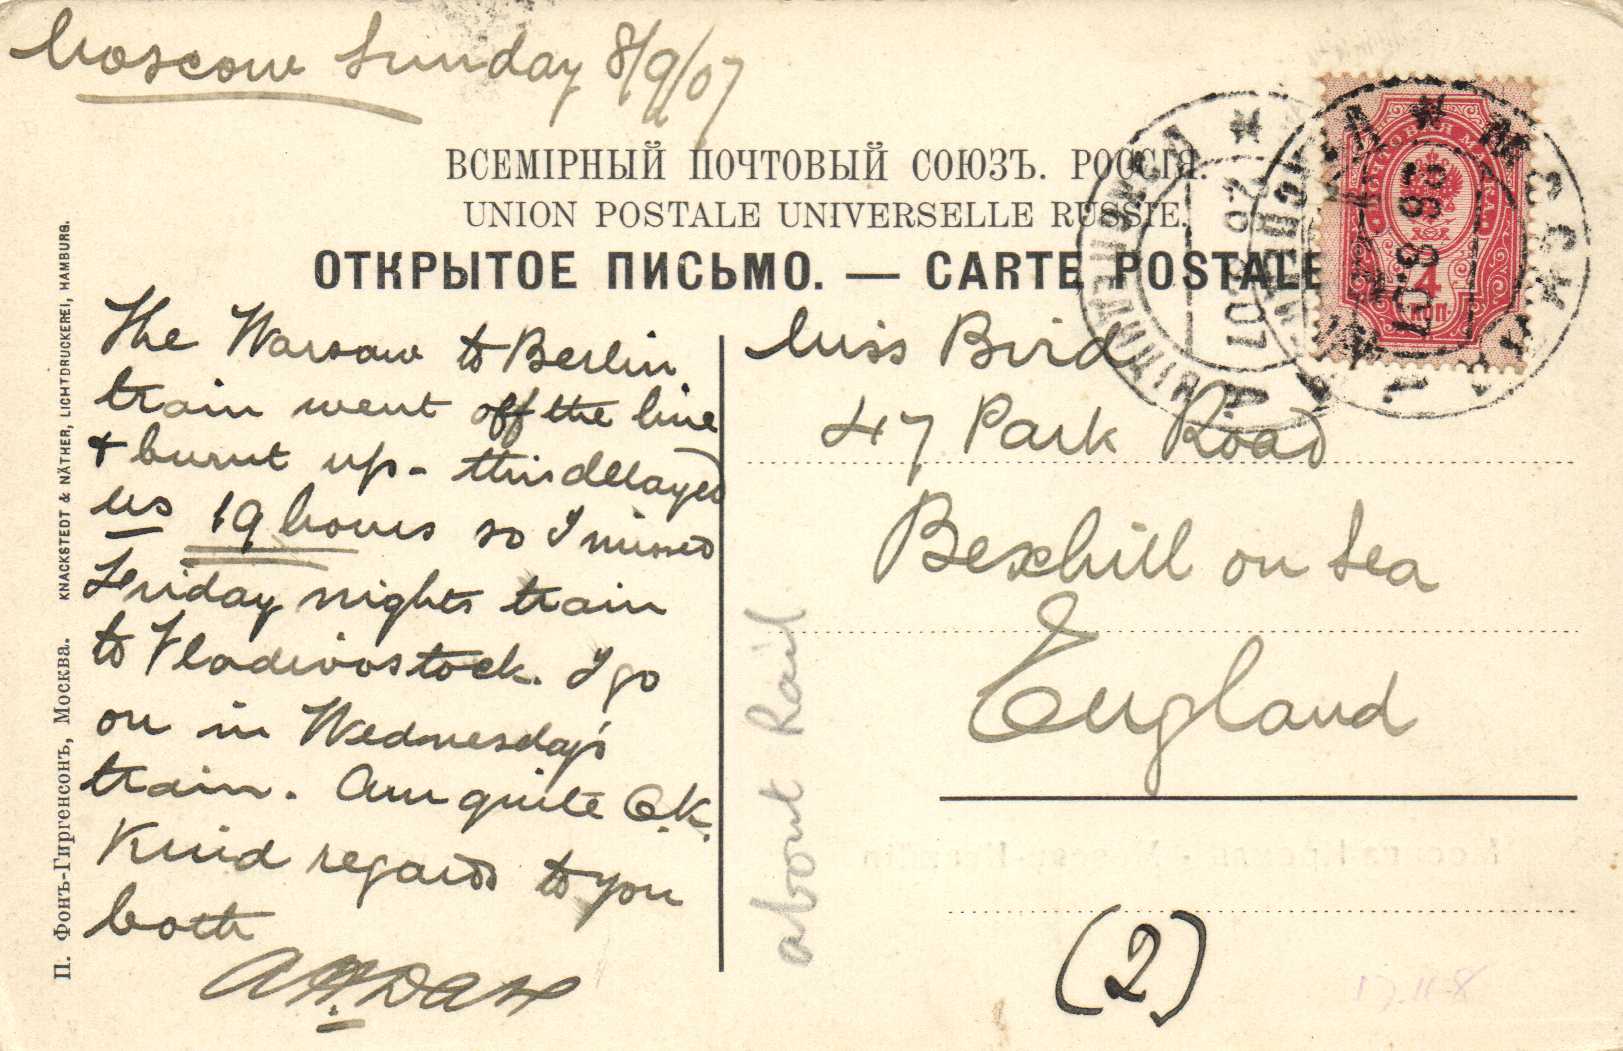 Moscow Sunday 8/9/07
ВСЕМІРНЫЙ ПОЧТОВЫЙ СОЮЗЪ. РОССІЯ.
UNION POSTALE UNIVERSELLE RUSSIE.
ОТКРЫТОЕ ПИСЬМО. — CARTE POSTALE
The Warsaw to Berlin
train went off the line
+ burnt up - this delayed
us 19 hours so I missed
Friday nights train
to Vladivostock. I go
on in Wednesday's
train. Am quite O.K.
Kind regards to you
both
Miss Bird
47 Park Road
Bexhill on Sea
England
about Rail
(2)
П. Фонъ-Гиргенсонъ, Москва. KNACKSTEDT & NÄTHER, LICHTDRUCKEREI, HAMBURG.
ПОЧТОВАЯ МАРКА
4
КОП
26 8 07
МОСКВА